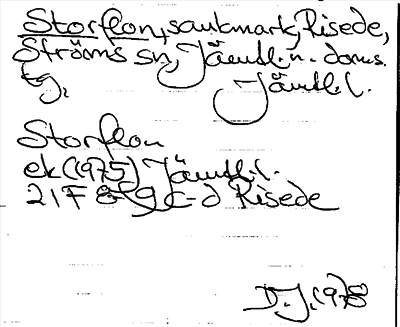 Storflon, sankmark, Risede,
Ströms sn, Jämtl. n. doms.
tg. Jämtl. l.
Storflon
ek (1975) Jämtl. l.
21F 8-9 c-d Risede
D.J. 1978